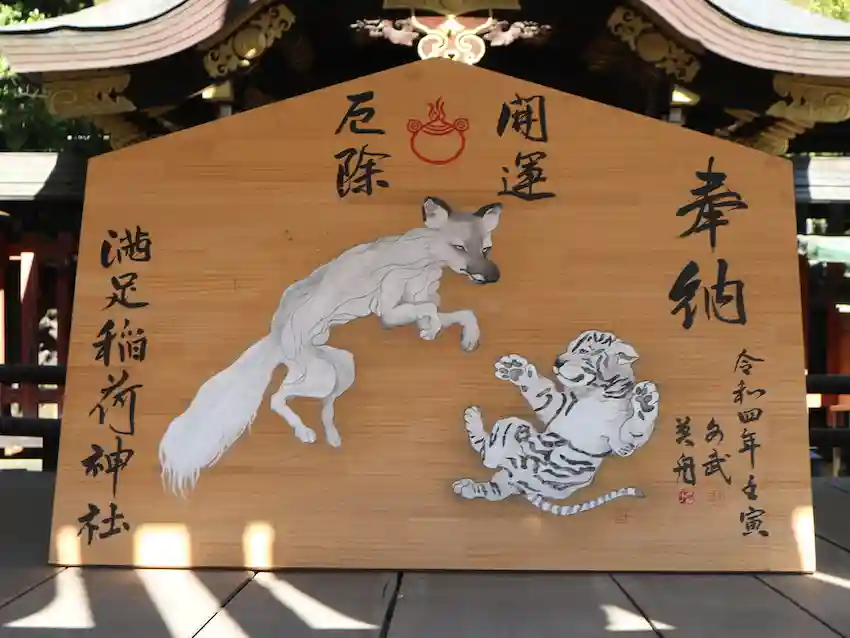 奉納
令和四年壬寅
文武
英舟
開運
厄除
満足稲荷神社